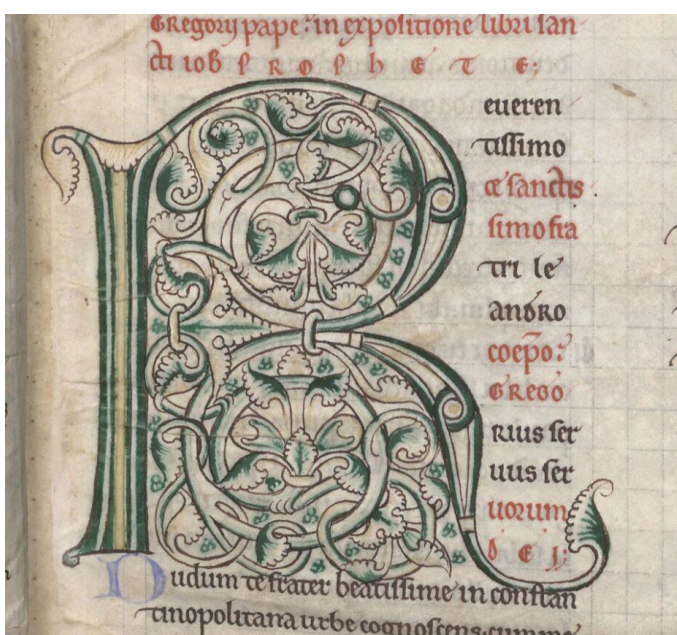 Gregorij pape: in expositione libri san
cti iob PROPhETE;
R eueren
tissimo
& sanctis
simo fra
tri le
andro
coep̄o:
GREGO
RIUS ser
uus ser
uorum
DEI;
Dudum te frater beatissime in constan
tinopolitana urbe cognoscens; cumme